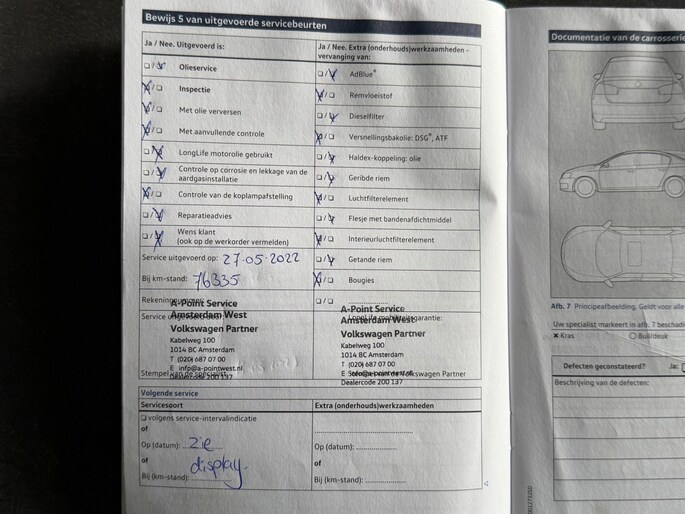 Bewijs 5 van uitgevoerde servicebeurten
Ja / Nee. Uitgevoerd is:
Olieservice
Inspectie
Met olie verversen
Met aanvullende controle
LongLife motorolie gebruikt
Controle op corrosie en lekkage van de
aardgasinstallatie
Controle van de koplampafstelling
Reparatieadvies
Wens klant
(ook op de werkorder vermelden)
Service uitgevoerd op: 27-05-2022
Bij km-stand: 76335
Rekeningnummer:
A-Point Service
Amsterdam West
Volkswagen Partner
Kabelweg 100
1014 BC Amsterdam
T (020) 687 07 00
E info@a-pointwest.nl
Dealercode 200 137
Stempel van de specialist
Ja / Nee. Extra (onderhouds)werkzaamheden -
vervanging van:
AdBlue®
Remvloeistof
Dieselfilter
Versnellingsbakolie: DSG®, ATF
Haldex-koppeling: olie
Geribde riem
Luchtfilterelement
Flesje met bandenafdichtmiddel
Interieurluchtfilterelement
Getande riem
Bougies
A-Point Service
LongLife mobiliteitsgarantie:
Amsterdam West
Volkswagen Partner
Kabelweg 100
1014 BC Amsterdam
T (020) 687 07 00
E info@a-pointwest.nl
Volkswagen Partner
Dealercode 200 137
Volgende service
Servicesoort
volgens service-intervalindicatie
of
Op (datum): zie
of display
Bij (km-stand):
Extra (onderhouds)werkzaamheden
Op (datum):
of
Bij (km-stand):
Documentatie van de carrosserie
Afb. 7 Principeafbeelding. Geldt voor alle
Uw specialist markeert in afb. 7 beschadi
Kras
Buil/deuk
Defecten geconstateerd? Ja:
Beschrijving van de defecten: